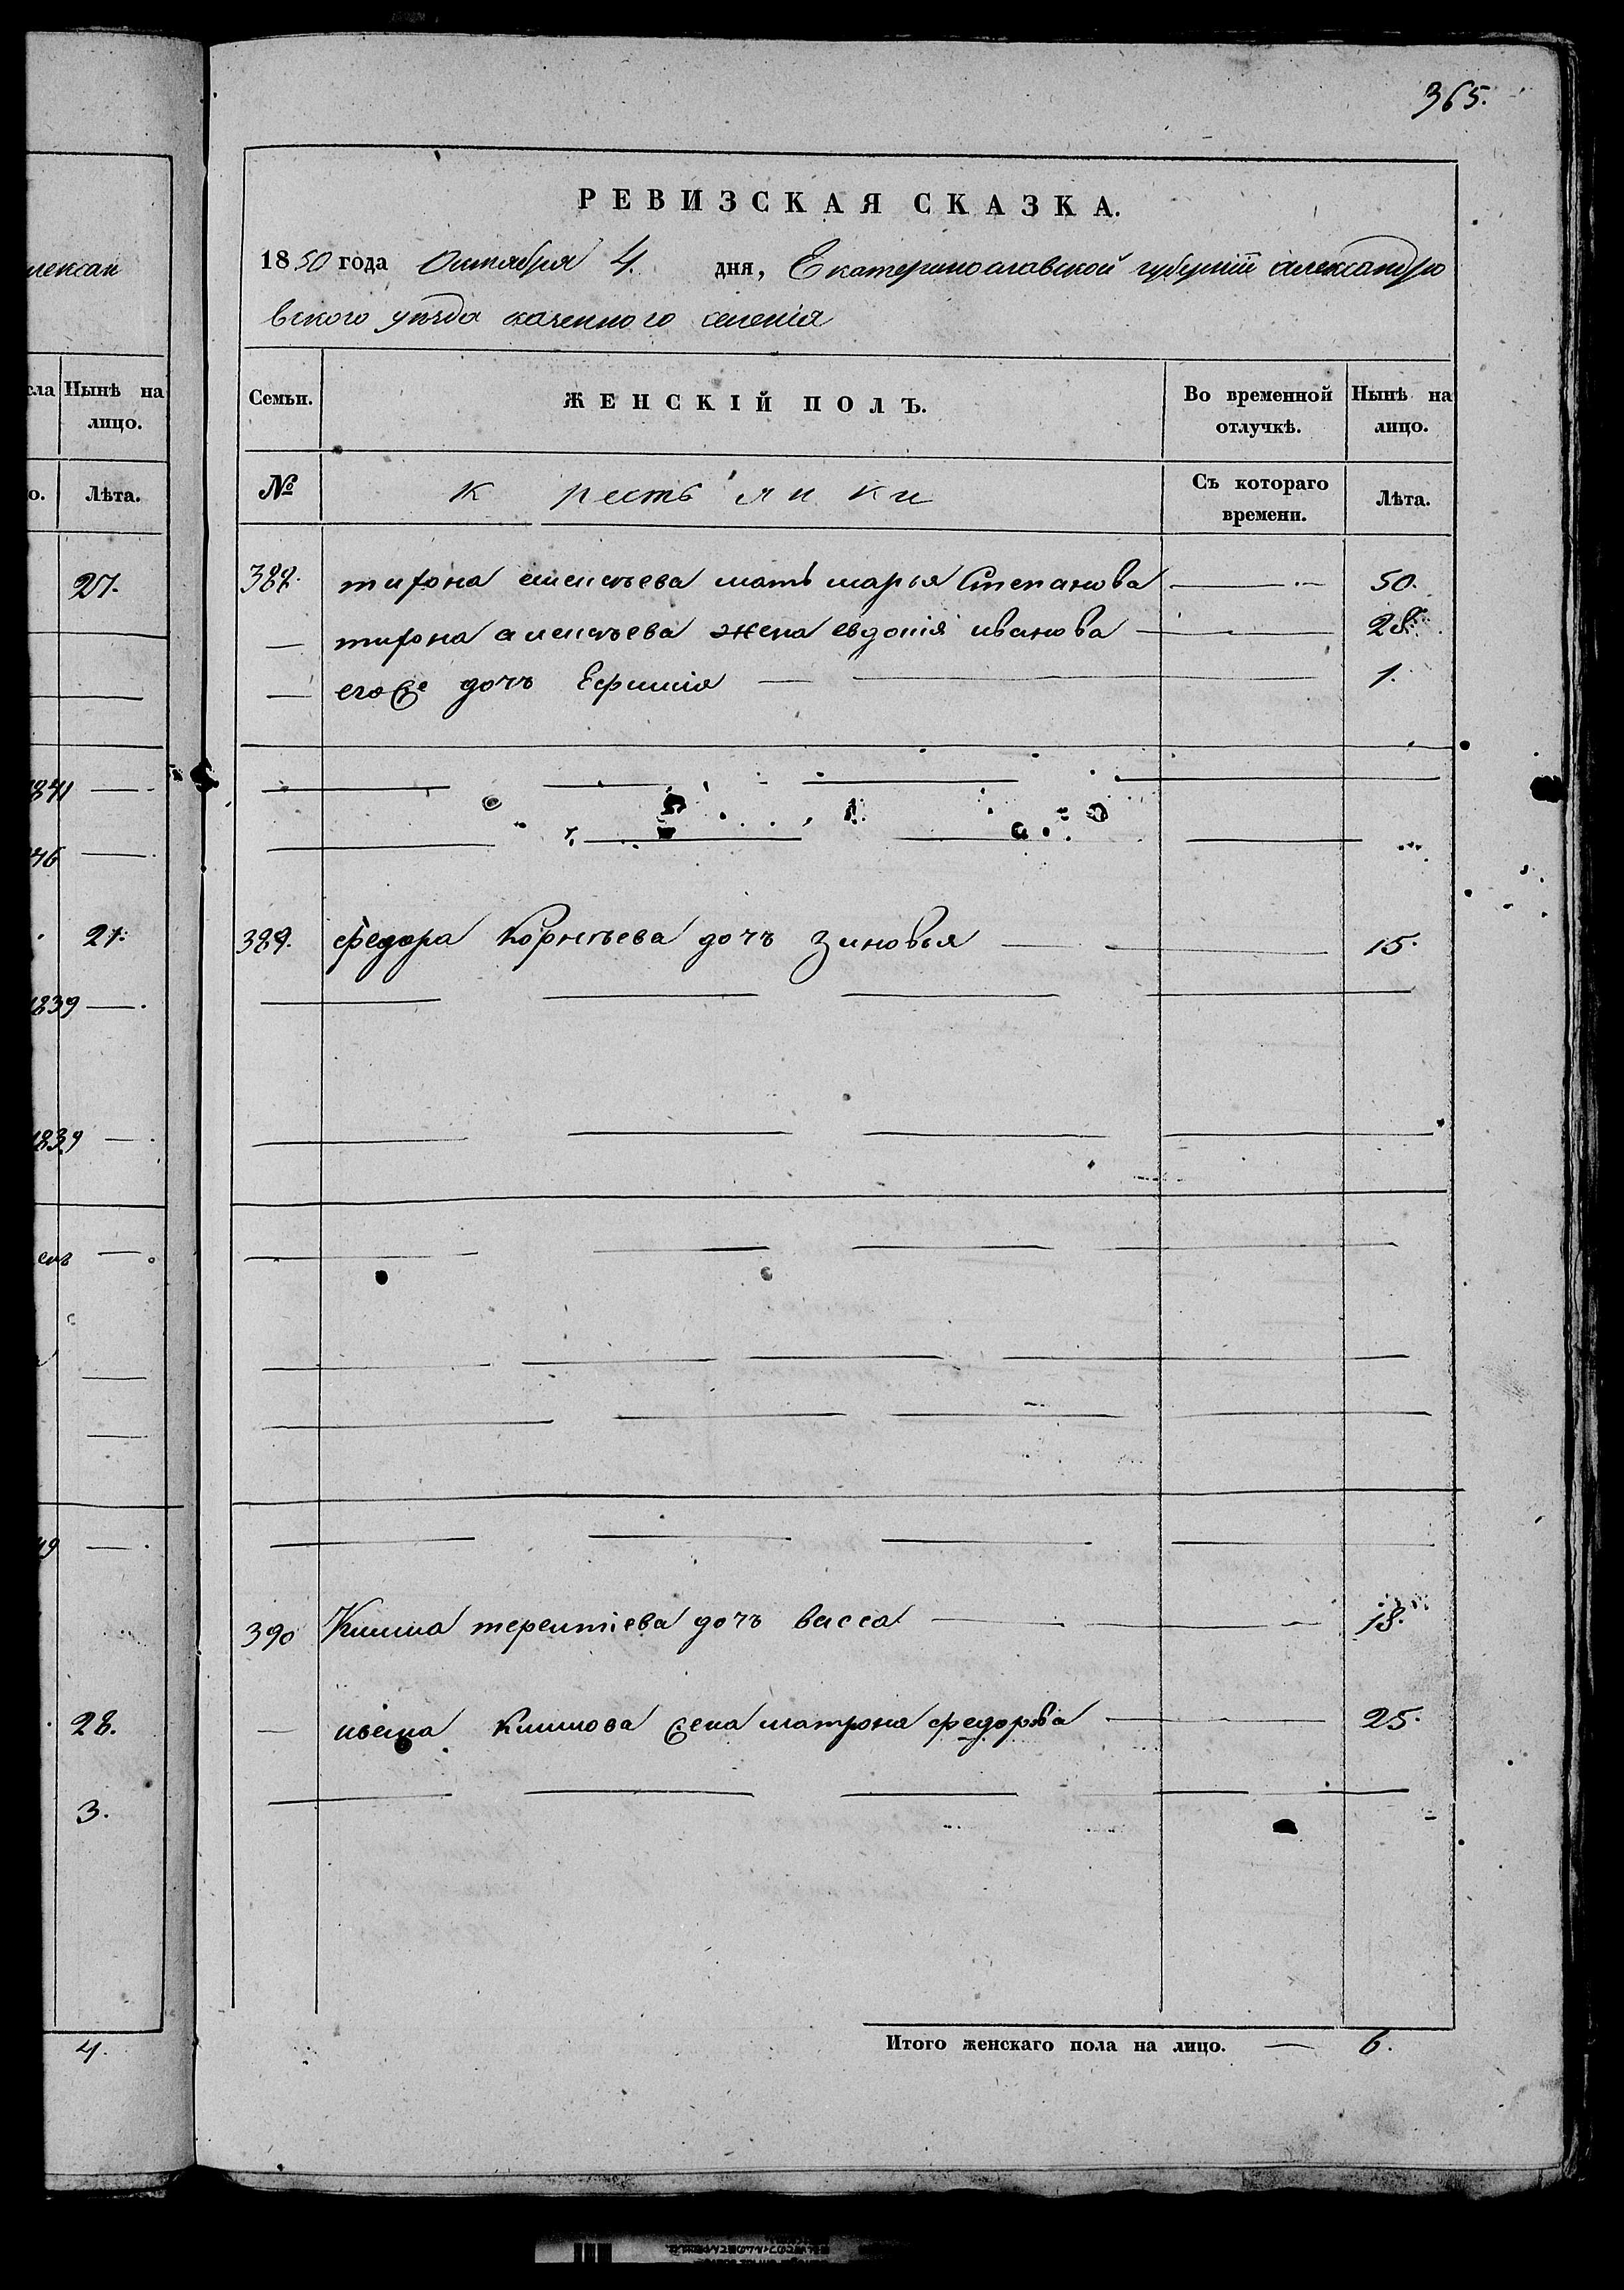 365.
РЕВИЗСКАЯ СКАЗКА.
1850 года Октября 4. дня, Екатеринославской губернiи александро
вского уѣзда казенного селенiя
лексан
Семьи. ЖЕНСКIЙ ПОЛЪ. Во временной отлучкѣ. Нынѣ на лицо.
сла Нынѣ на лицо.
№ крестьянки Съ котораго времени. Лѣта.
о. Лѣта.
388. тихона алексѣева мать марья Степанова — 50.
27.
— тихона алексѣева жена евдокiя иванова — 28.
— его же дочь Ефимiя — 1.
1841 —
46 —
389. федора Корнѣева дочь Зиновья — 15.
21.
1839 —
1839 —
49 —
390 Клима терентiева дочь васса — 18.
— Климова жена матрона федорова — 25.
28.
3.
Итого женскаго пола на лицо. — 6.
4.